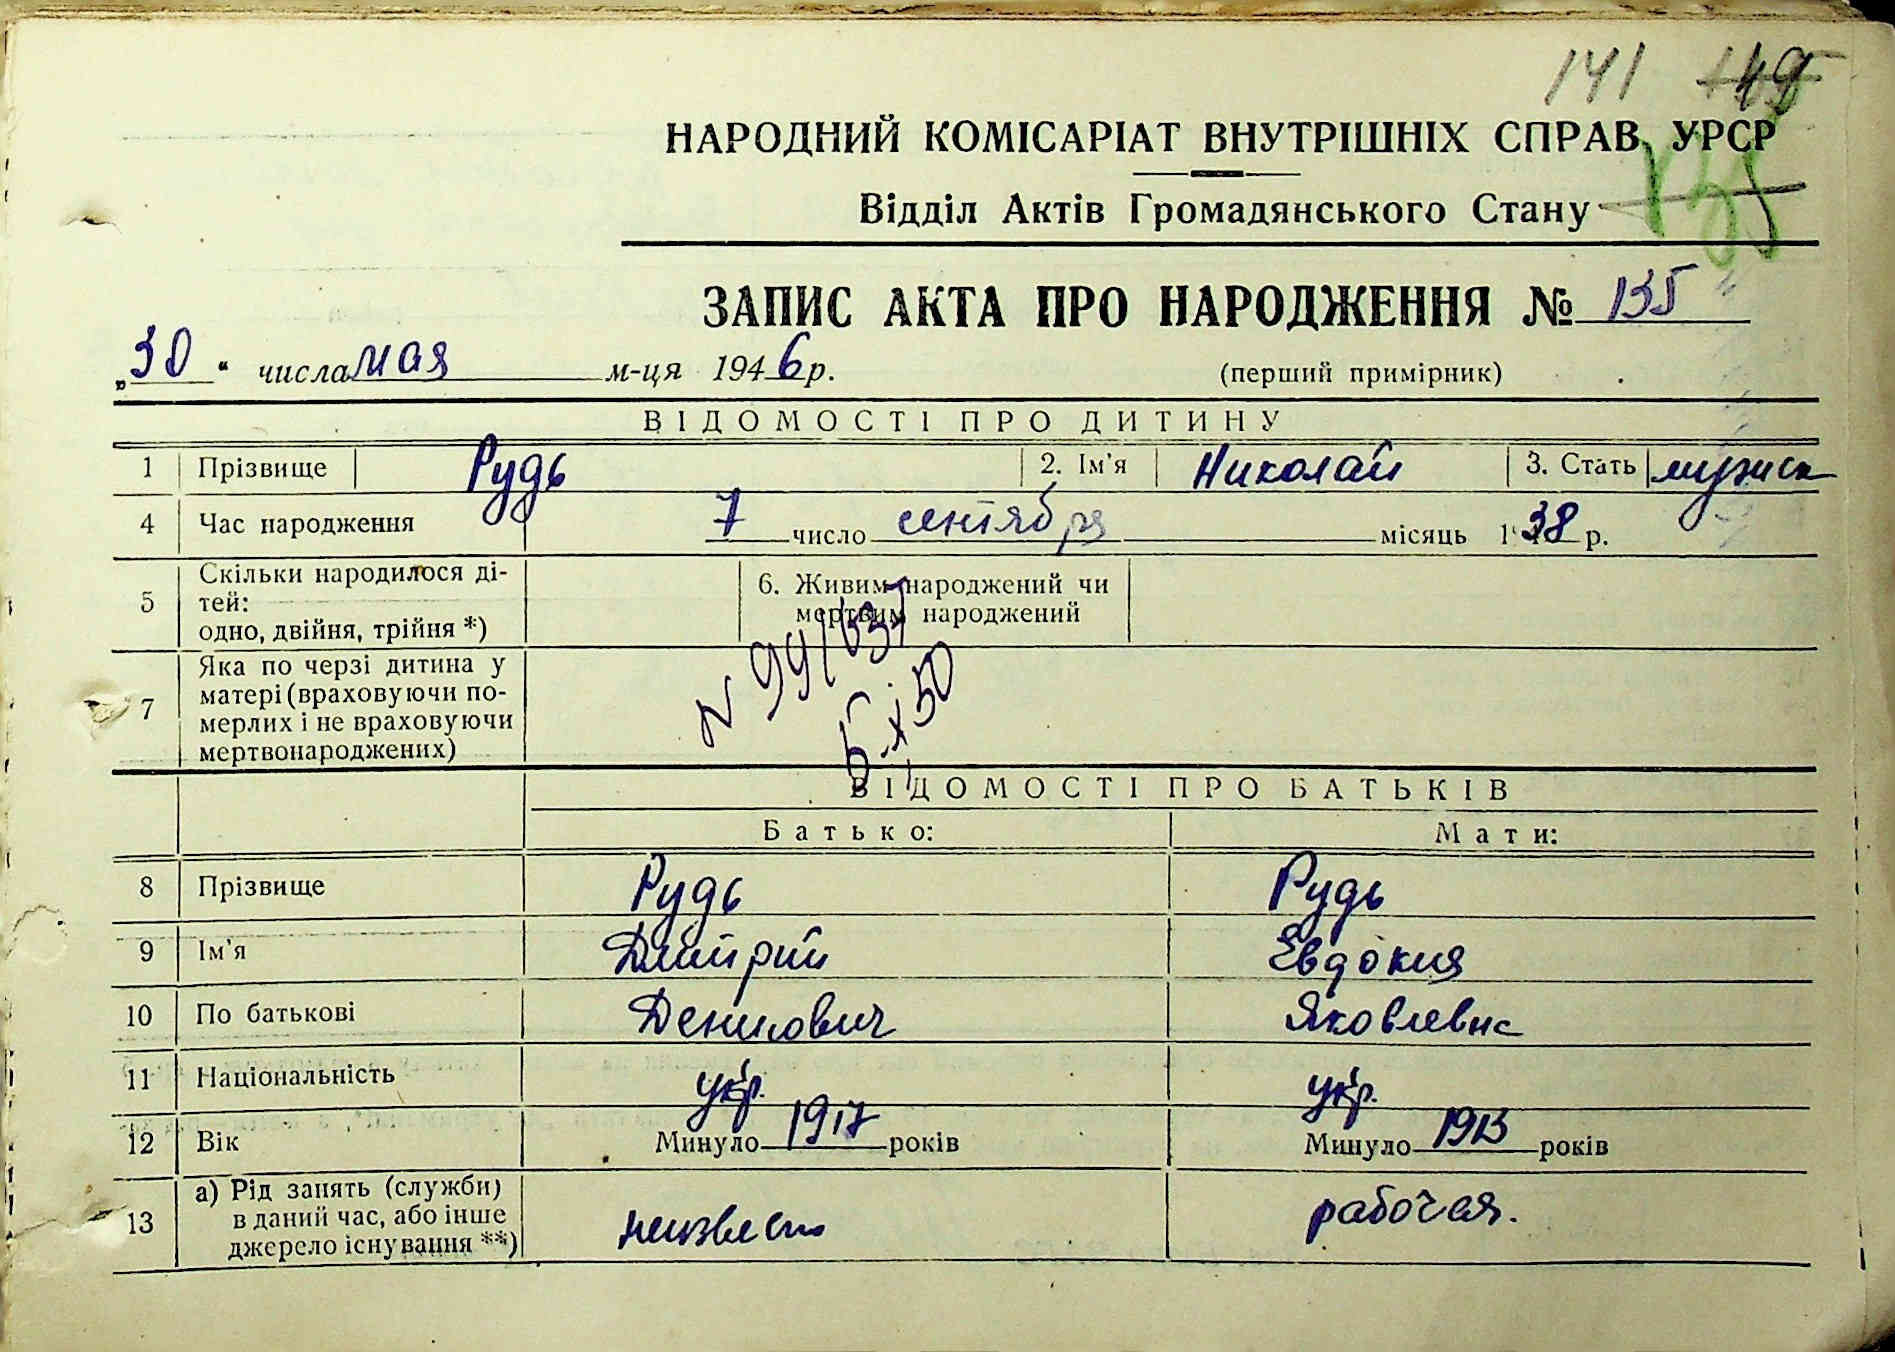 141
НАРОДНИЙ КОМІСАРІАТ ВНУТРІШНІХ СПРАВ УРСР
Відділ Актів Громадянського Стану
ЗАПИС АКТА ПРО НАРОДЖЕННЯ № 135
„30“ числа мая м-ця 1946 р. (перший примірник)
ВІДОМОСТІ ПРО ДИТИНУ
1 Прізвище Рудь 2. Ім'я Николай 3. Стать мужск
4 Час народження 7 число сентября місяць 1938 р.
5 Скільки народилося ді-
тей:
одно, двійня, трійня *)
6. Живим народжений чи
мертвим народжений
7 Яка по черзі дитина у
матері (враховуючи по-
мерлих і не враховуючи
мертвонароджених)
N 99/
5.XI 50
ВІДОМОСТІ ПРО БАТЬКІВ
Батько: Мати:
8 Прізвище Рудь Рудь
9 Ім'я Дмитрий Евдокия
10 По батькові Денисович Яковлевна
11 Національність укр. укр.
12 Вік Минуло 1917 років Минуло 1913 років
13 а) Рід занять (служби)
в даний час, або інше
джерело існування **)
неизвестно рабочая.